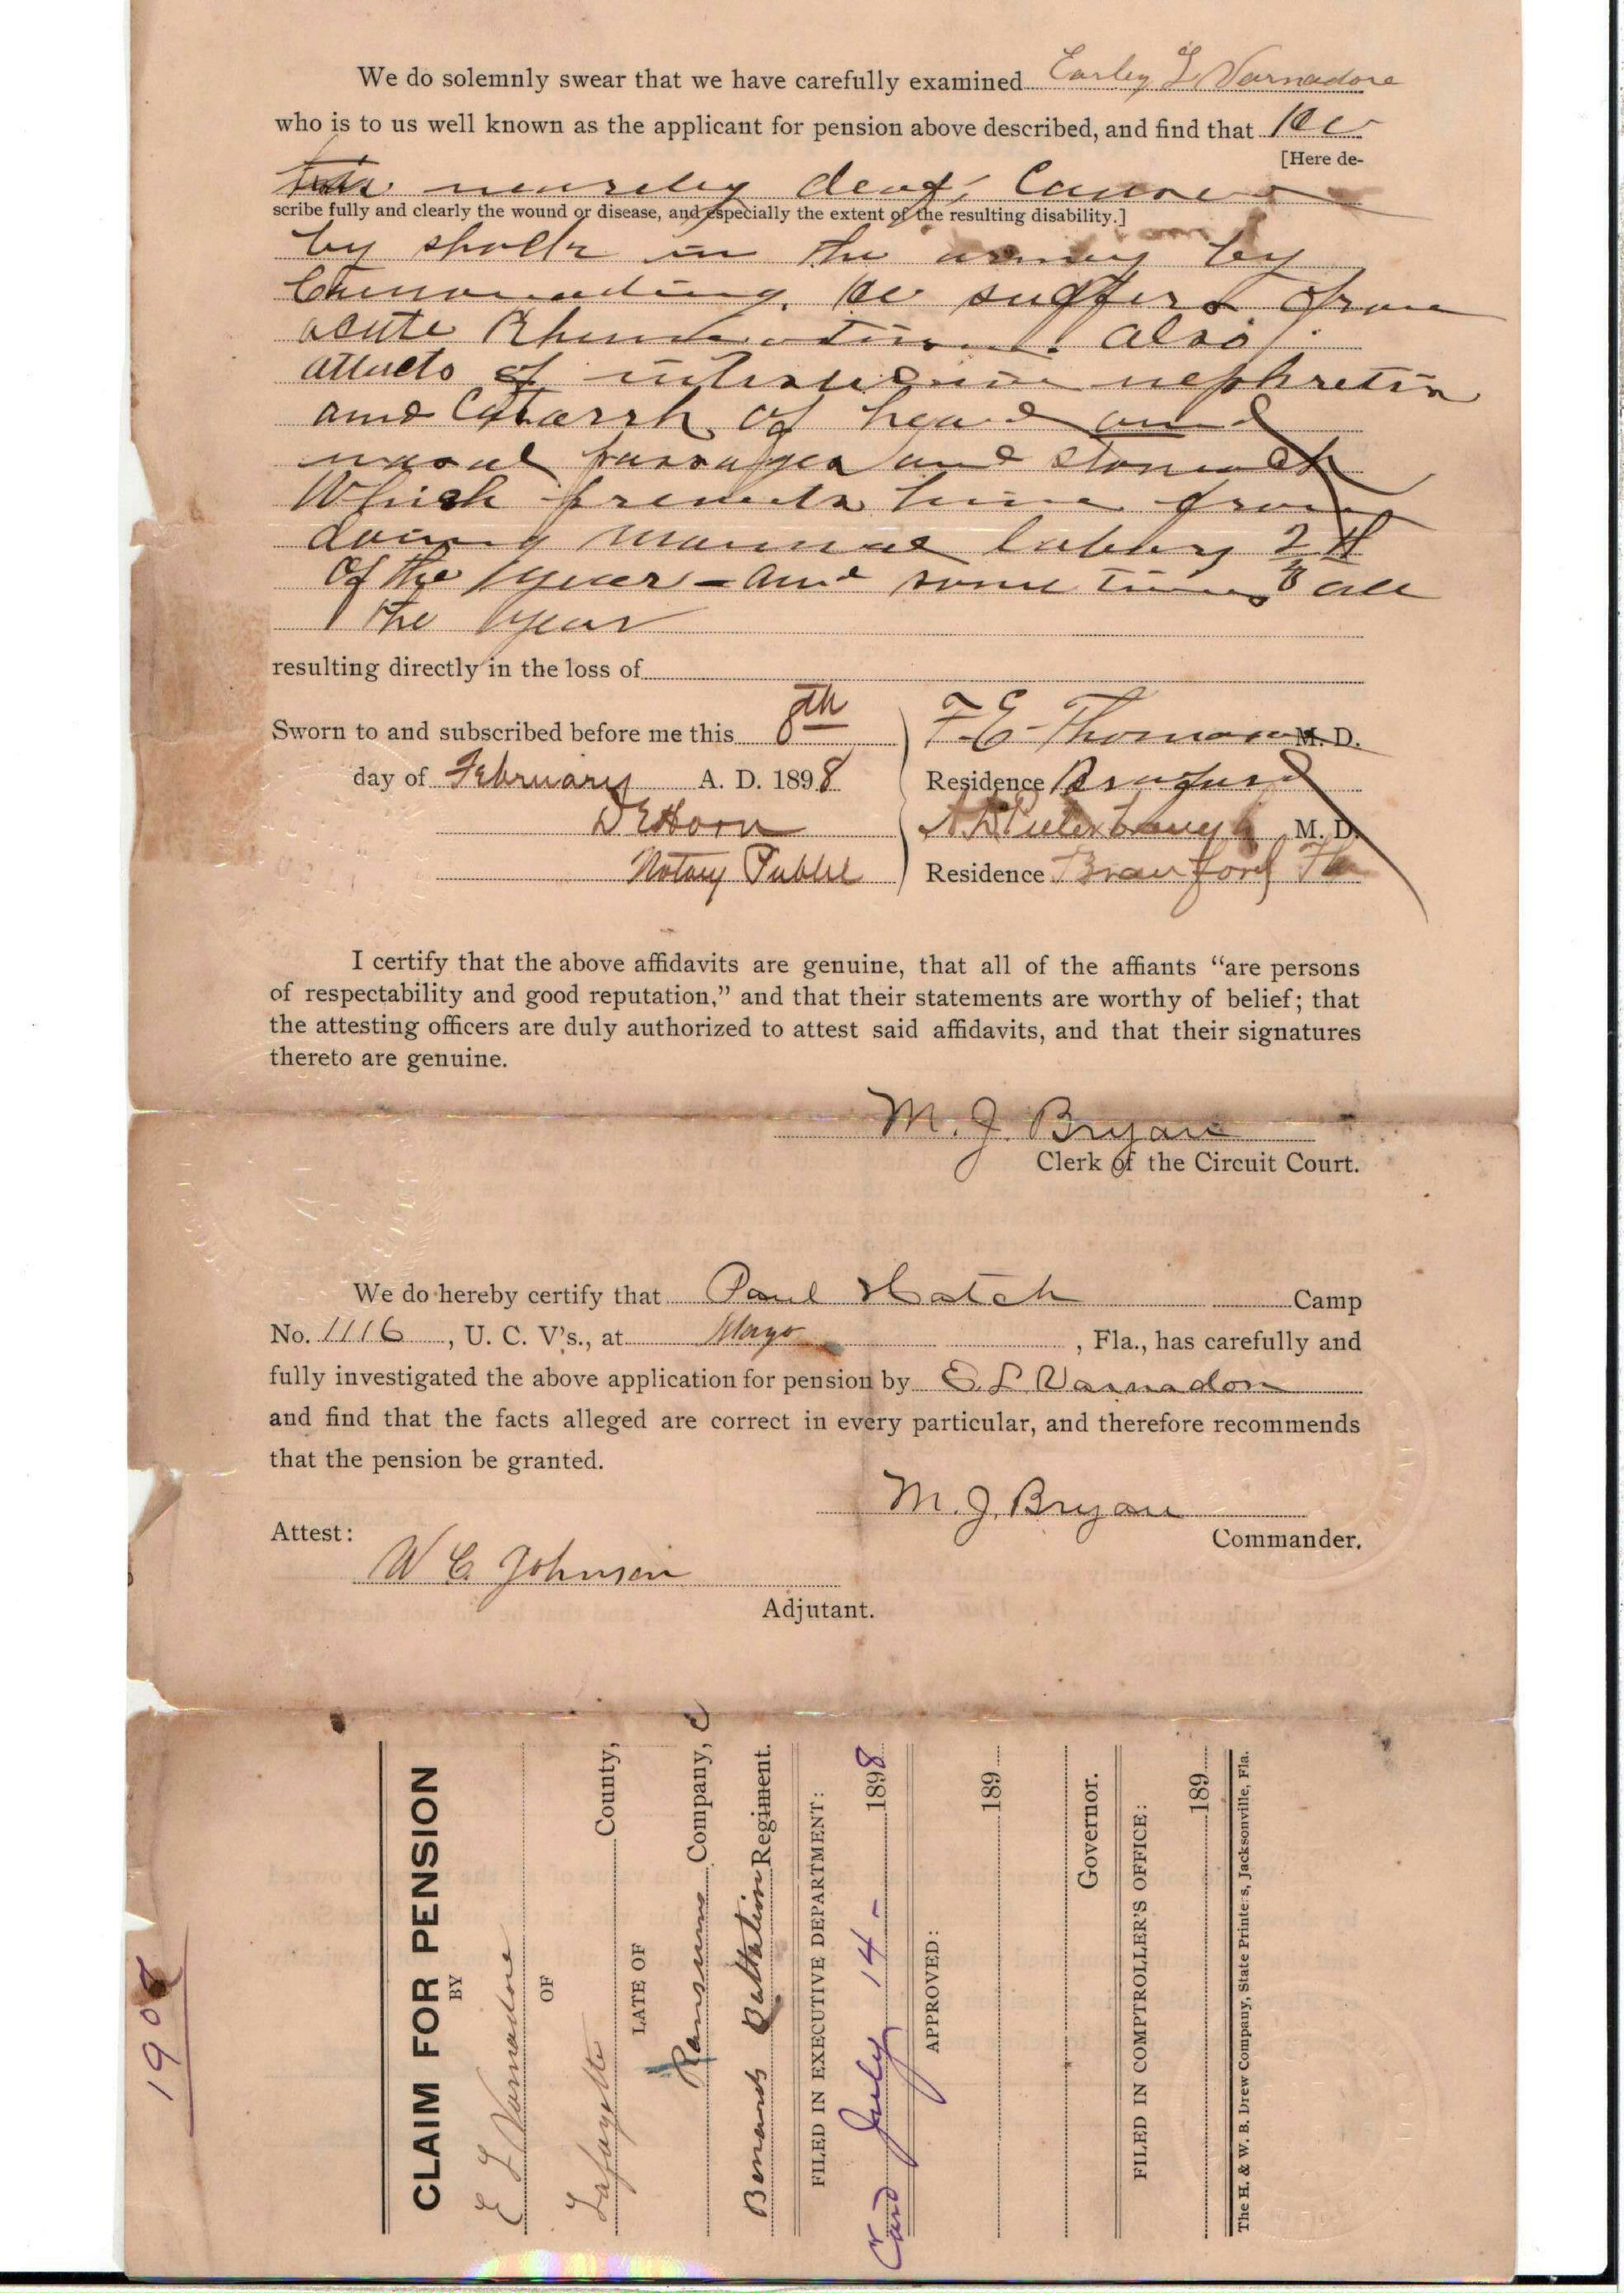 We do solemnly swear that we have carefully examined Earley L Varnadore
who is to us well known as the applicant for pension above described, and find that He
[Here de-
deaf, Cause
scribe fully and clearly the wound or disease, and especially the extent of the resulting disability.]
by in the army by
He suffers from
acute Rhumatism. also
attacks of nephretis
and Catarrh of head and
nasal passages and stomach
Which prevents him from
doing manual labory
of the year - and some times all
the year
resulting directly in the loss of
Sworn to and subscribed before me this 8th
F. E. Thomas M. D.
day of February A. D. 1898
Residence Branford
D E Horn
M. D.
Notary Public
Residence Branford Fla
I certify that the above affidavits are genuine, that all of the affiants “are persons
of respectability and good reputation,” and that their statements are worthy of belief; that
the attesting officers are duly authorized to attest said affidavits, and that their signatures
thereto are genuine.
M. J. Bryan
Clerk of the Circuit Court.
We do hereby certify that Paul Hatch Camp
No. 1116, U. C. V's., at Mayo, Fla., has carefully and
fully investigated the above application for pension by E. L. Varnadore
and find that the facts alleged are correct in every particular, and therefore recommends
that the pension be granted.
M. J. Bryan
Commander.
Attest:
W C. Johnson
Adjutant.
1902
CLAIM FOR PENSION
BY
E L Varnadore
OF
Lafayette County,
LATE OF
Company, C
Battalion Regiment.
FILED IN EXECUTIVE DEPARTMENT:
Card July 14 - 1898
APPROVED:
189
Governor.
FILED IN COMPTROLLER'S OFFICE:
189
The H. & W. B. Drew Company, State Printers, Jacksonville, Fla.